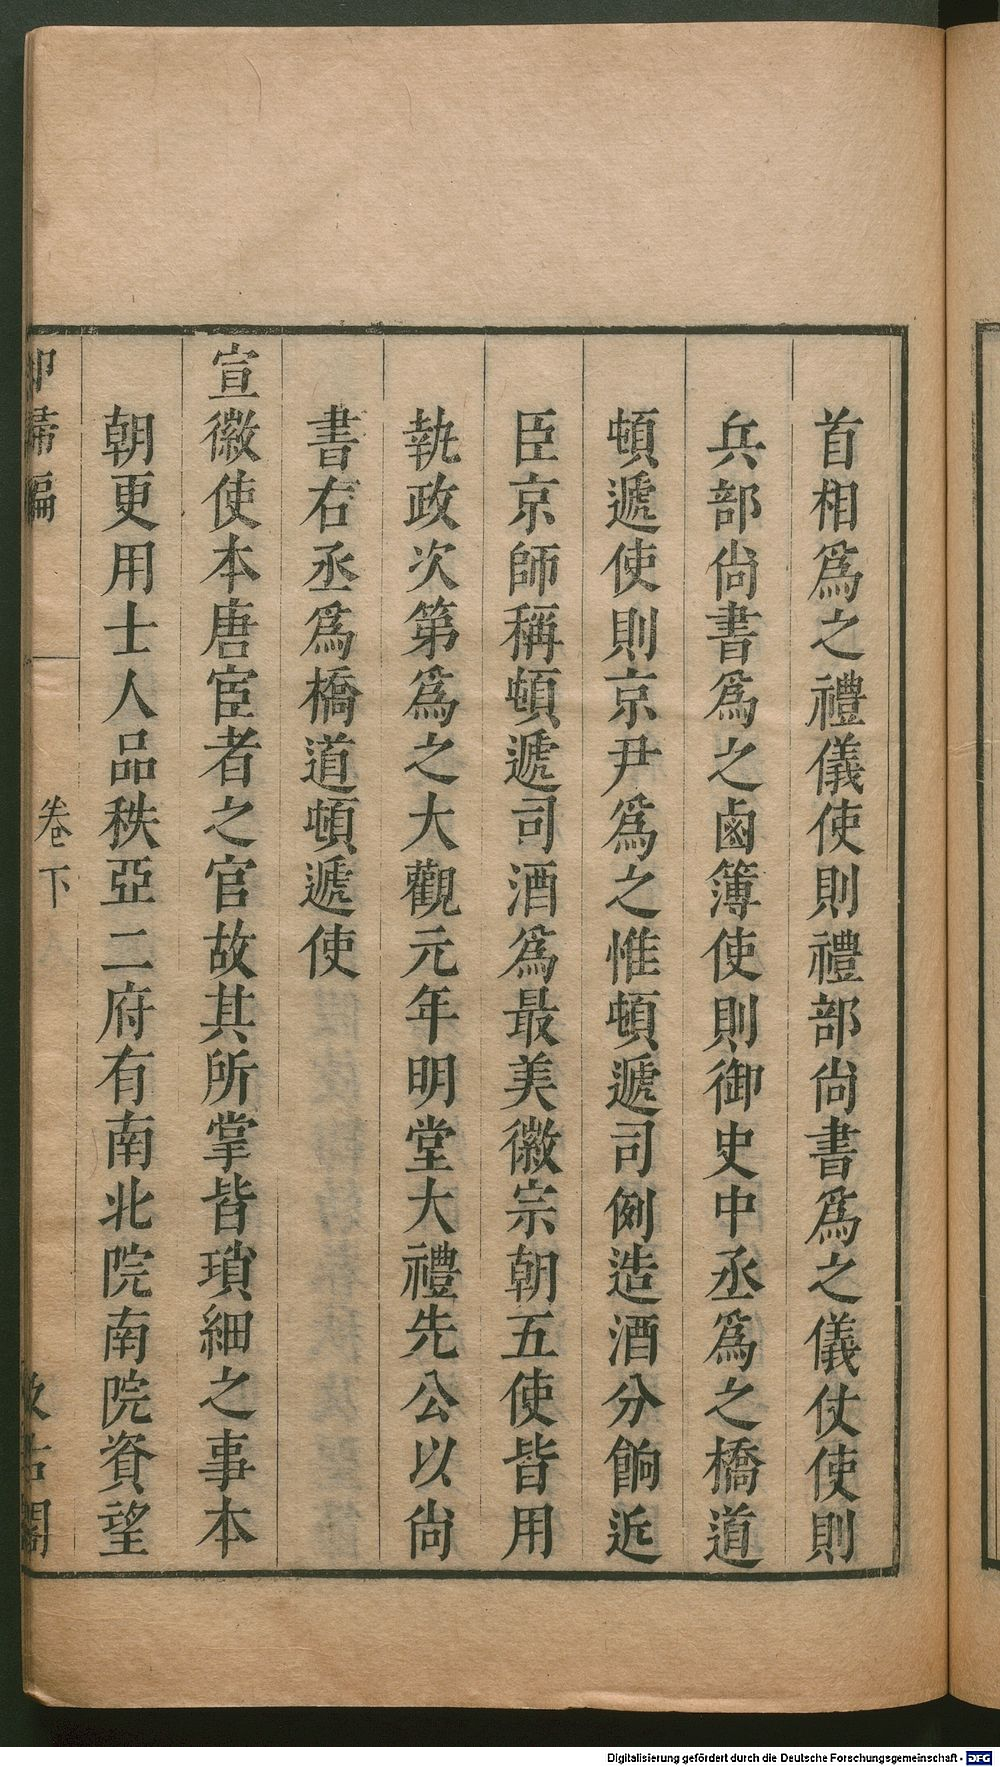 首相爲之禮儀使則禮部尚書爲之儀仗使則
兵部尚書爲之鹵簿使則御史中丞爲之橋道
頓遞使則京尹爲之惟頓遞司例造酒分餉近
臣京師稱頓遞司酒爲最美徽宗朝五使皆用
執政次第爲之大觀元年明堂大禮先公以尚
書右丞爲橋道頓遞使
宣徽使本唐宦者之官故其所掌皆瑣細之事本
朝更用士人品秩亞二府有南北院南院資望
却掃編 卷下 汲古閣
Digitalisierung gefördert durch die Deutsche Forschungsgemeinschaft - DFG